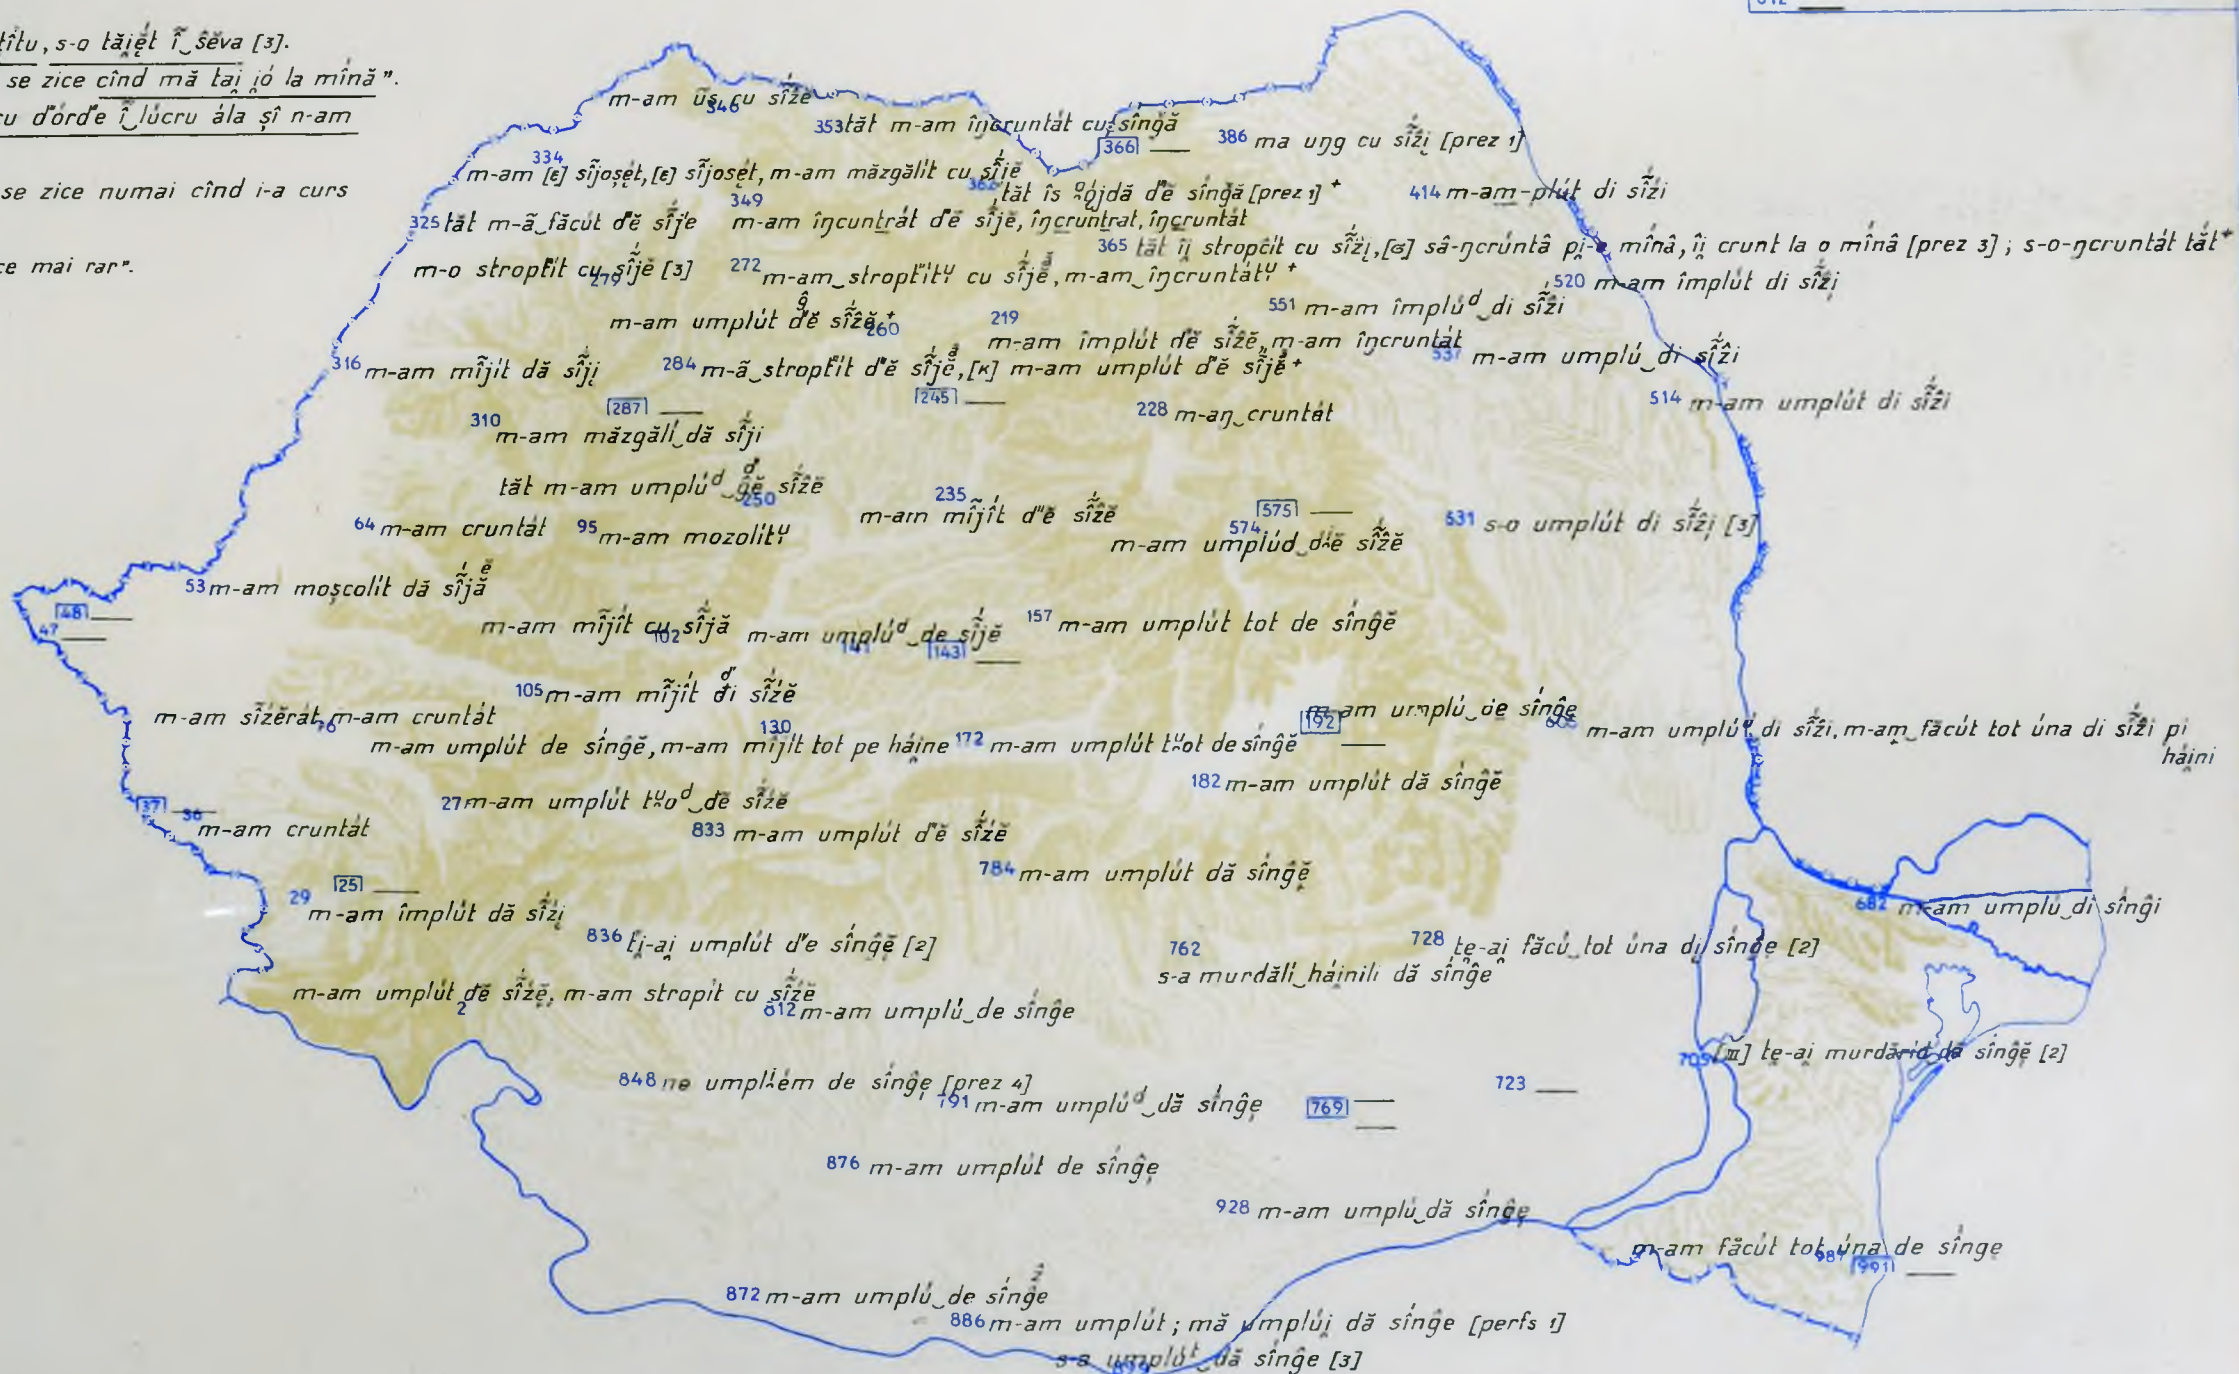 812 ___
s-o tăi̯ét î̃‿séva [3].
se zice cînd mă tai̯ i̯ó la mînă".
d'órd'e î̃‿lúcru ála șî n-am
se zice numai cînd i-a curs
mai rar".
m-am ũs cu sî̃́źe
346
353 tăt m-am îŋcruntát cu sî́ngă
366 ___
386 ma uŋg cu sî̃́źi̯ [prez 1]
334
m-am [ε] sî̃joșę́t, [ε] sî̃joșét, m-am măzgălít cu sî̃́jĕ
362 tăt îs d'ĕ sî́ngă [prez 1] +
414 m-am-plút di sî̃́źi
349
325 tăt m-ã‿făcút d'ĕ sî̃́j'e
m-am îŋcuntrát d'ĕ sî̃́jĕ, îŋcruntrat, îŋcruntát
365 tăt îi̯ stropcít cu sî̃́źi̯, [ɞ] sâ-ŋcrúntâ pi̯-o mî́nâ, îi̯ crunt la o mî́nâ [prez 3] ; s-o-ŋcruntát tăt +
m-o stropt'ít cu sî̃́jĕ [3]
279
272 m-am‿stropt'ítᵘ cu sî̃́jĕ, m-am‿îŋcruntátᵘ +
520 m-am împlút di sî̃́źi̯
551 m-am împlúᵈ‿di sî̃́źi
m-am umplút d'ĕ sî̃́źĕ +
260
219
m-am împlút d'ĕ sî̃́źĕ, m-am încruntát
537 m-am umplú‿di sî̃́źi
316 m-am mî̃jít dă sî̃́ji̯
284 m-ã‿stropt'ít d'ĕ sî̃́jĕ, [κ] m-am umplút d'ĕ sî̃́jĕ +
287 ___
245 ___
514 m-am umplút di sî̃́źi
310
m-am măzgălí‿dă sî̃́ji
228 m-aŋ‿cruntát
tăt m-am umplúᵈ‿ĝĕ sî̃́źĕ
250
235
m-am mî̃jít d'ĕ sî̃́źĕ
575 ___
531 s-o umplút di sî̃́źi̯ [3]
64 m-am cruntát
95 m-am mozolítᵘ
574
m-am umplúd‿dĕ sî̃́źĕ
53 m-am moșcolít dă sî̃́jă
48 ___
47 ___
m-am mî̃jít cu sî̃́jă
102
m-am umplúᵈ‿de sî̃́jĕ
141
143 ___
157 m-am umplút tot de sî́nĝĕ
105 m-am mî̃jít di sî̃́źĕ
m-am sî̃źĕrát, m-am cruntát
76
130
m-am umplút de sî́nĝĕ, m-am mî̃jít tot pe hái̯ne
172 m-am umplút tᵘot de sî́nĝĕ
m-am umplú‿de sî́nĝe
192 ___
605 m-am umplútᵘ di sî̃́źi, m-am‿făcút tot úna di sî̃́źi pi
hái̯ni
182 m-am umplút dă sî́nĝĕ
27 m-am umplút tᵘoᵈ‿dĕ sî̃́źĕ
37 ___
36
m-am cruntát
833 m-am umplút d'ĕ sî̃́źĕ
784 m-am umplút dă sî́nĝĕ
25 ___
29
m-am împlút dă sî̃́źi̯
682 m-am umplú‿di sî́nĝi
836 ți-ai̯ umplút d'e sî́nĝĕ [2]
762
s-a murdălí‿háinili dă sî́nĝe
728 te-ai̯ făcú‿tot úna di sî́nĝe [2]
m-am umplút dĕ sî̃́źĕ, m-am stropit cu sî̃́źĕ
2
812 m-am umplú‿de sî́nĝe
705 [III] te-ai̯ murdărid‿dă sî́nĝĕ [2]
848 ne umplém de sî́nĝe [prez 4]
791 m-am umplúᵈ‿dă sî́nĝe
769 ___
___
723 ___
876 m-am umplút de sî́nĝe
928 m-am umplú‿dă sî́nĝe
m-am făcút tot úna de sî́nge
987
991 ___
872 m-am umplú‿de sî́nĝe
886 m-am umplút ; mă umplúi̯ dă sî́nĝe [perfs 1]
s-a umplúᵗ‿dă sî́nĝe [3]
899